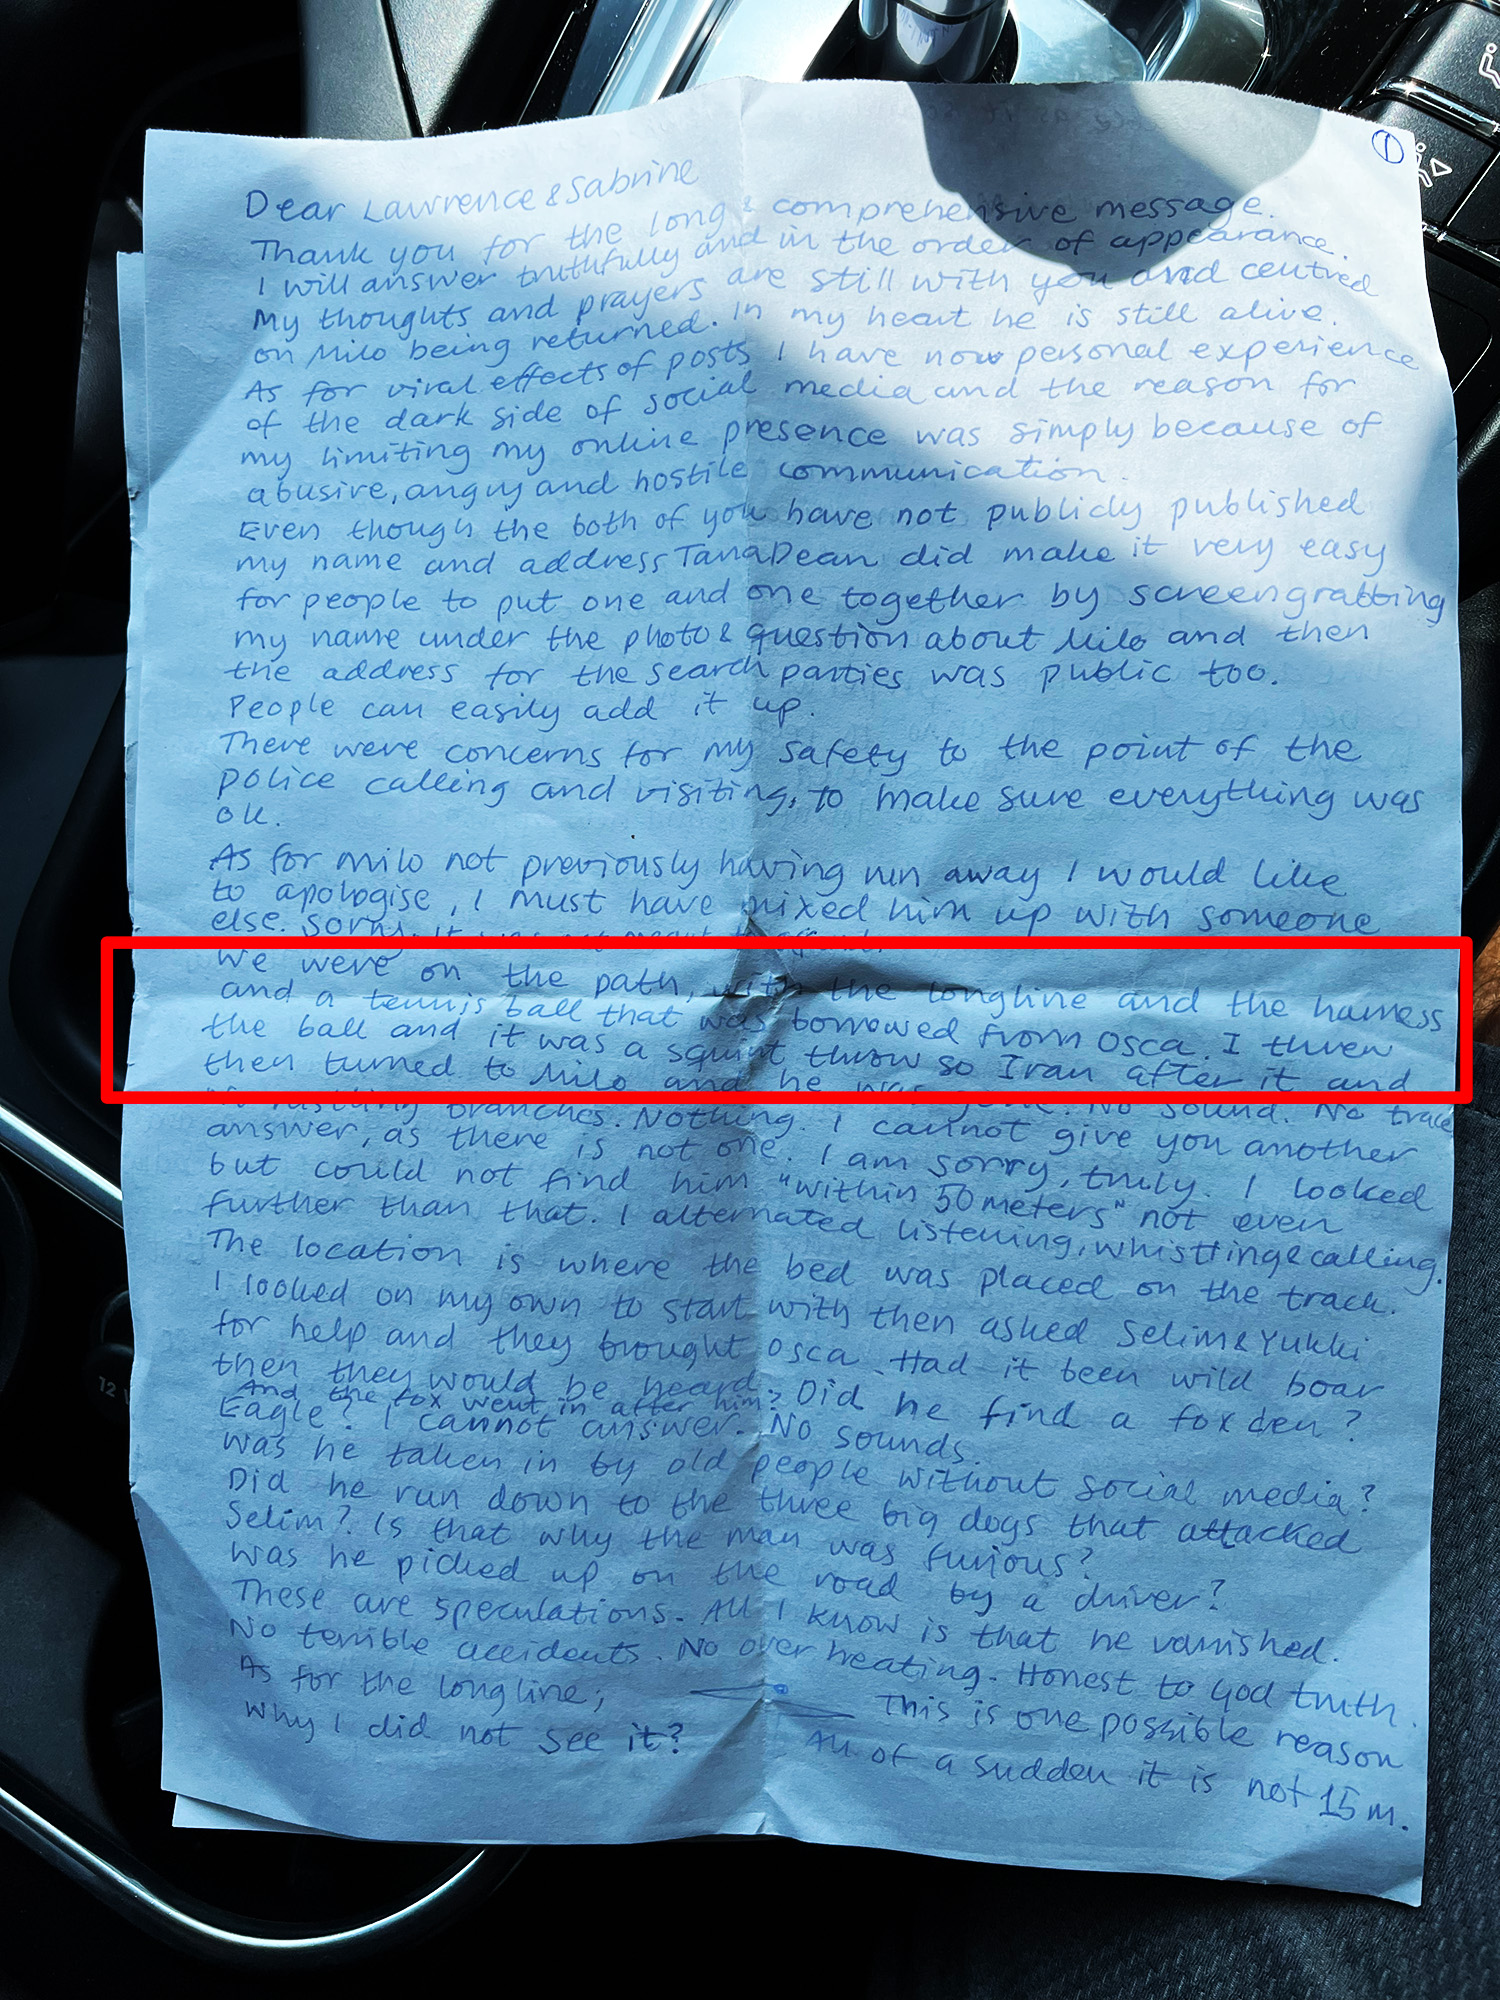 ①
Dear Lawrence & Sabrine
Thank you for the long & comprehensive message.
I will answer truthfully and in the order of appearance.
My thoughts and prayers are still with you and centred
on Milo being returned. In my heart he is still alive.
As for viral effects of posts I have now personal experience
of the dark side of social media and the reason for
my limiting my online presence was simply because of
abusive, angry and hostile communication.
Even though the both of you have not publicly published
my name and address Tana Dean did make it very easy
for people to put one and one together by screengrabbing
my name under the photo & question about Milo and then
the address for the search parties was public too.
People can easily add it up.
There were concerns for my safety to the point of the
police calling and visiting, to make sure everything was
ok.
As for Milo not previously having run away I would like
to apologise, I must have mixed him up with someone
else. Sorry. It was not meant to
We were on the path, with the longline and the harness
and a tennis ball that was borrowed from Osca. I threw
the ball and it was a squint throw so I ran after it and
then turned to Milo and he was gone. No sound. No trace
rustling branches. Nothing. I cannot give you another
answer, as there is not one. I am sorry, truly. I looked
but could not find him "within 50 meters" not even
further than that. I alternated listening, whistling & calling.
The location is where the bed was placed on the track.
I looked on my own to start with then asked Selim & Yukki
for help and they brought Osca. Had it been wild boar
then they would be heard. Did he find a fox den?
And the fox went in after him?
Eagle? I cannot answer. No sounds.
Was he taken in by old people without social media?
Did he run down to the three big dogs that attacked
Selim? Is that why the man was furious?
Was he picked up on the road by a driver?
These are speculations. All I know is that he vanished.
No terrible accidents. No over heating. Honest to god truth.
As for the longline;
Why I did not see it?
This is one possible reason
All of a sudden it is not 15 m.
12